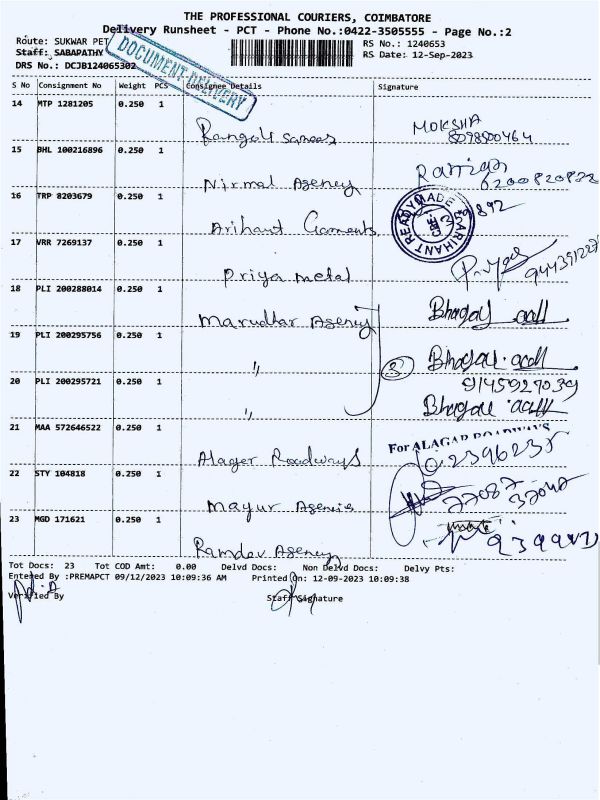 THE PROFESSIONAL COURIERS, COIMBATORE
Delivery Runsheet - PCT - Phone No.:0422-3505555 - Page No.:2
Route: SUKWAR PET
RS No.: 1240653
Staff: SABAPATHY
RS Date: 12-Sep-2023
DRS No.: DCJB124065302
DOCUMENT DELIVERY
S No Consignment No Weight PCS Consignee Details Signature
14 MTP 1281205 0.250 1
Rangoli Sarees MOKSHA
8098500464
15 BHL 100216896 0.250 1
Nirmal Agency
16 TRP 8203679 0.250 1
Arihant Garments ARIHANT READYMADE CBE. 892
17 VRR 7269137 0.250 1
Priya metal Priya
18 PLI 200288014 0.250 1
Marudhar Agency Bhagal
19 PLI 200295756 0.250 1
" 3 Bhagal
20 PLI 200295721 0.250 1
9145927039
" Bhagal
21 MAA 572646522 0.250 1
For ALAGAR ROADWAYS
Alager Roadways
22 STY 104818 0.250 1
Mayur Agencie
23 MGD 171621 0.250 1
Ramdev Agency
Tot Docs: 23 Tot COD Amt: 0.00 Delvd Docs: Non Delvd Docs: Delvy Pts:
Entered By :PREMAPCT 09/12/2023 10:09:36 AM Printed On: 12-09-2023 10:09:38
Verified By Staff Signature